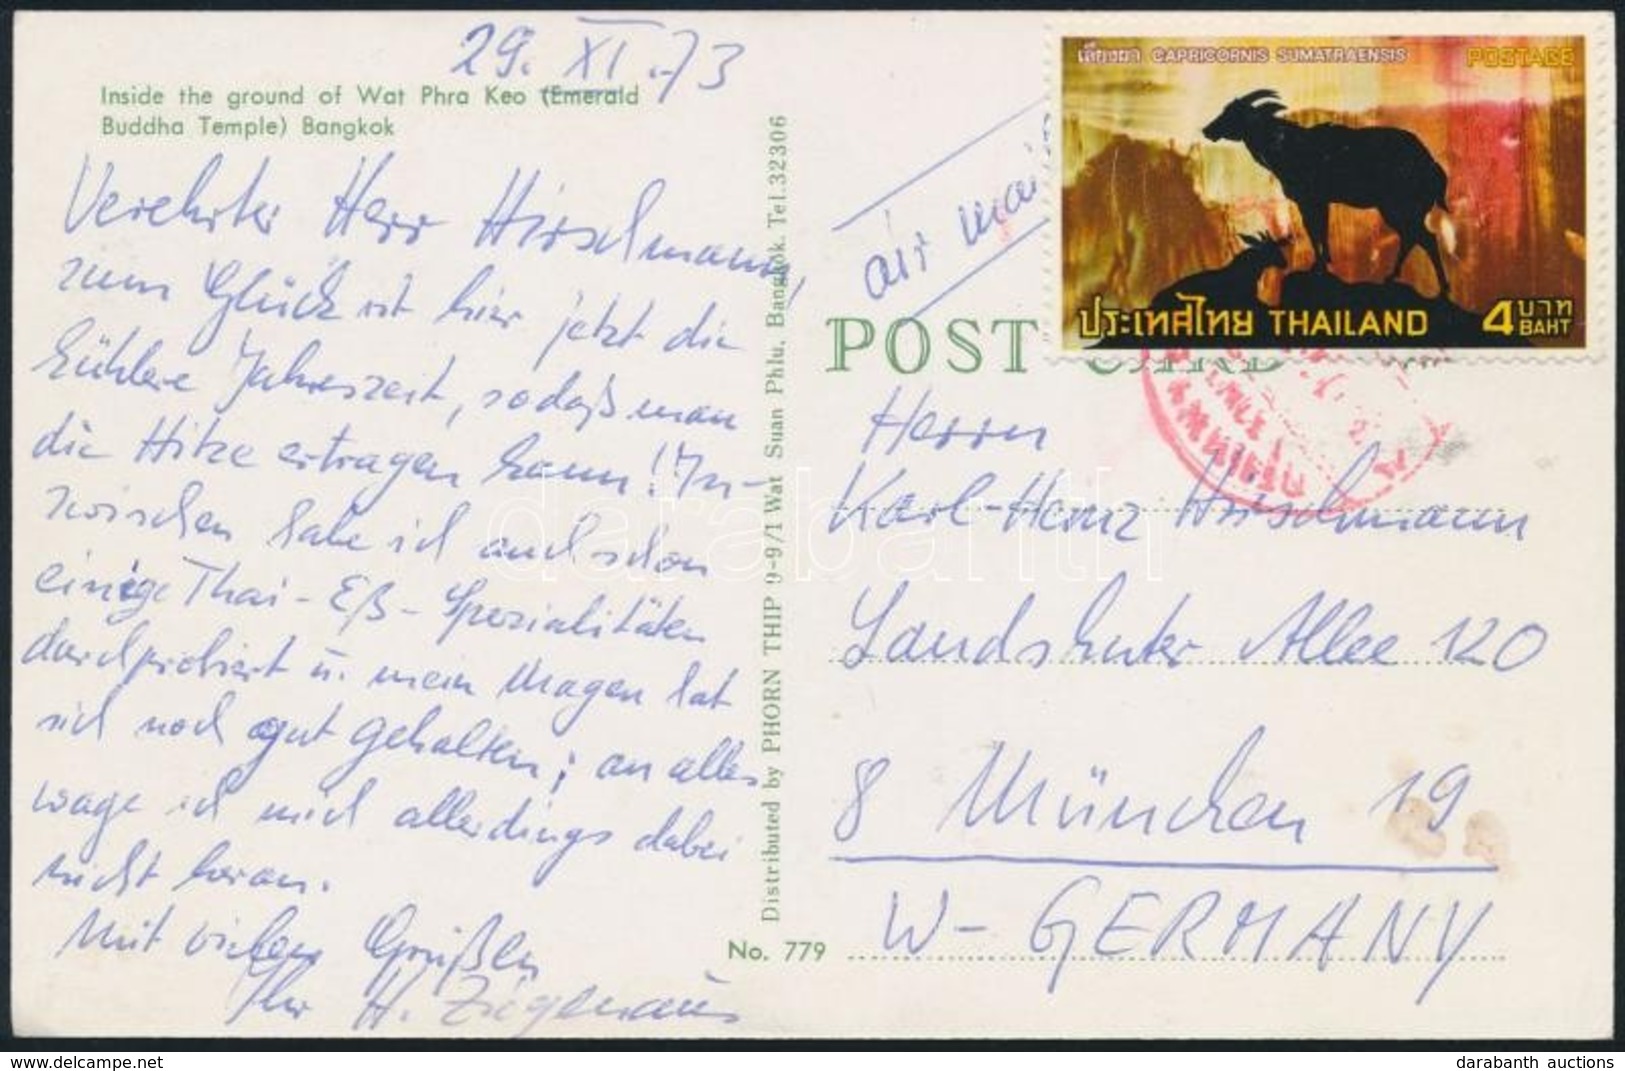 29. XI. 73
Inside the ground of Wat Phra Keo (Emerald
Buddha Temple) Bangkok
Verehrter Herr Hirschmann,
zum Glück ist hier jetzt die
kühlere Jahreszeit, sodaß man
die Hitze ertragen kann! In-
zwischen habe ich auch schon
einige Thai-Eß-Spezialitäten
durchprobiert u. mein Magen hat
sich noch gut gehalten; an alles
wage ich mich allerdings dabei
nicht heran.
Mit vielen Grüßen
Ihr H. Ziegenaus
Distributed by PHORN THIP 9-9/1 Wat Suan Phlu. Bangkok. Tel. 32306
No. 779
air mail
เลียงผา CAPRICORNIS SUMATRAENSIS POSTAGE
ประเทศไทย THAILAND 4 บาท BAHT
POST CARD
Herrn
Karl-Heinz Hirschmann
Landshuter Allee 120
8 München 19
W-GERMANY
darabanth
darabanth.com
darabanth auctions